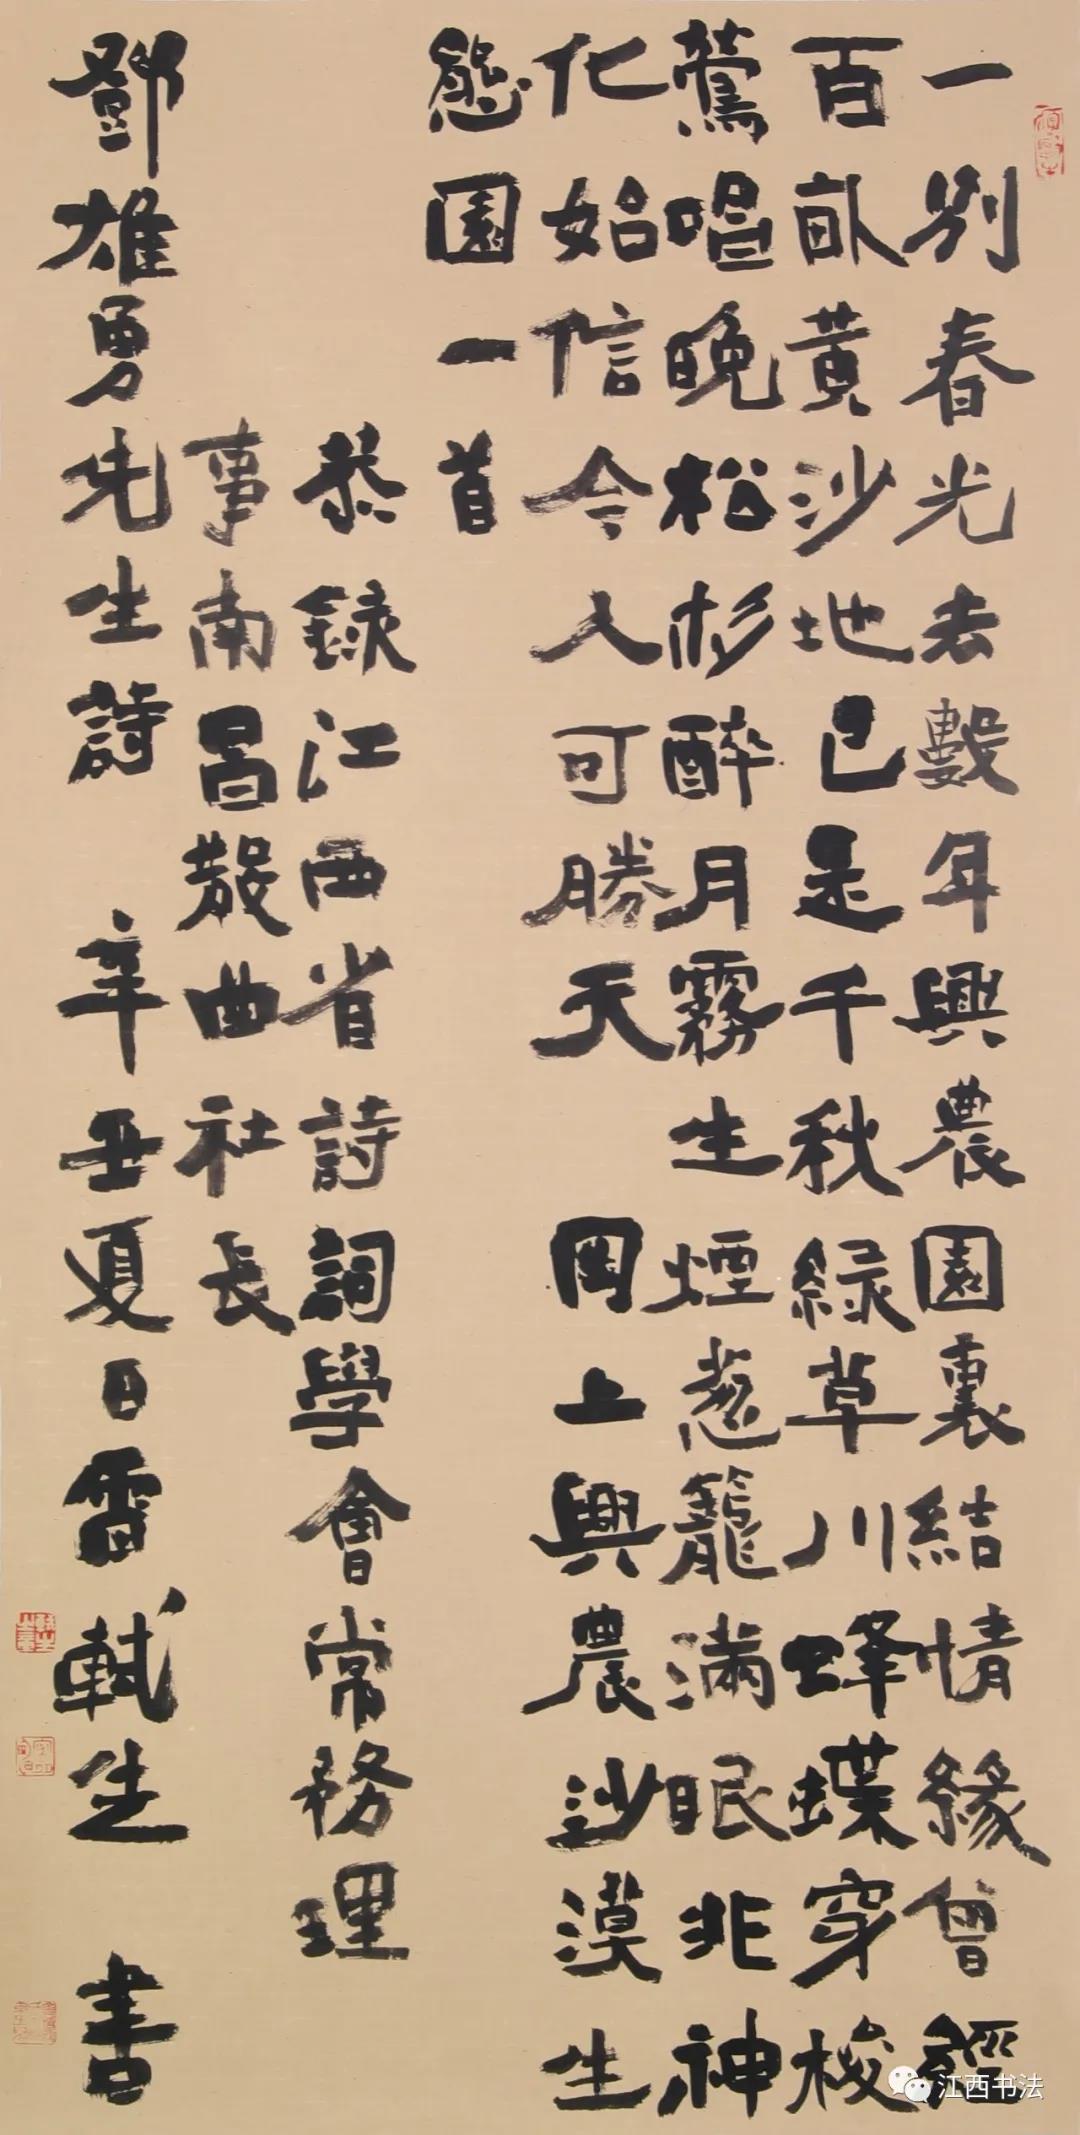 一别春光去數年興農園裏結情緣曾經
百畝黄沙地已是千秋緑草川蜂蝶穿梭
鶯唱晚松杉醉月霧生煙葱籠满眼非神
化始信今人可勝天 岡上興農沙漠生
態園一首
恭録江西省詩詞學會常務理
事南昌散曲社長
鄧雄勇先生詩 辛丑夏日雷軾生 書
江西书法